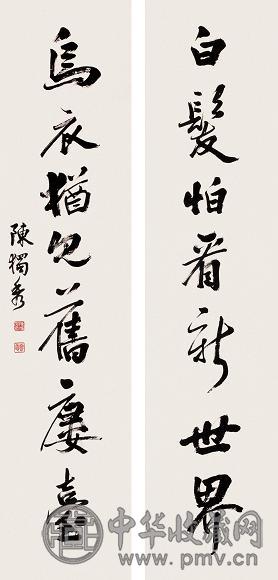 白髮怕看新世界
烏衣猶見舊廔臺
陳獨秀
中华收藏网
www.pmv.cn